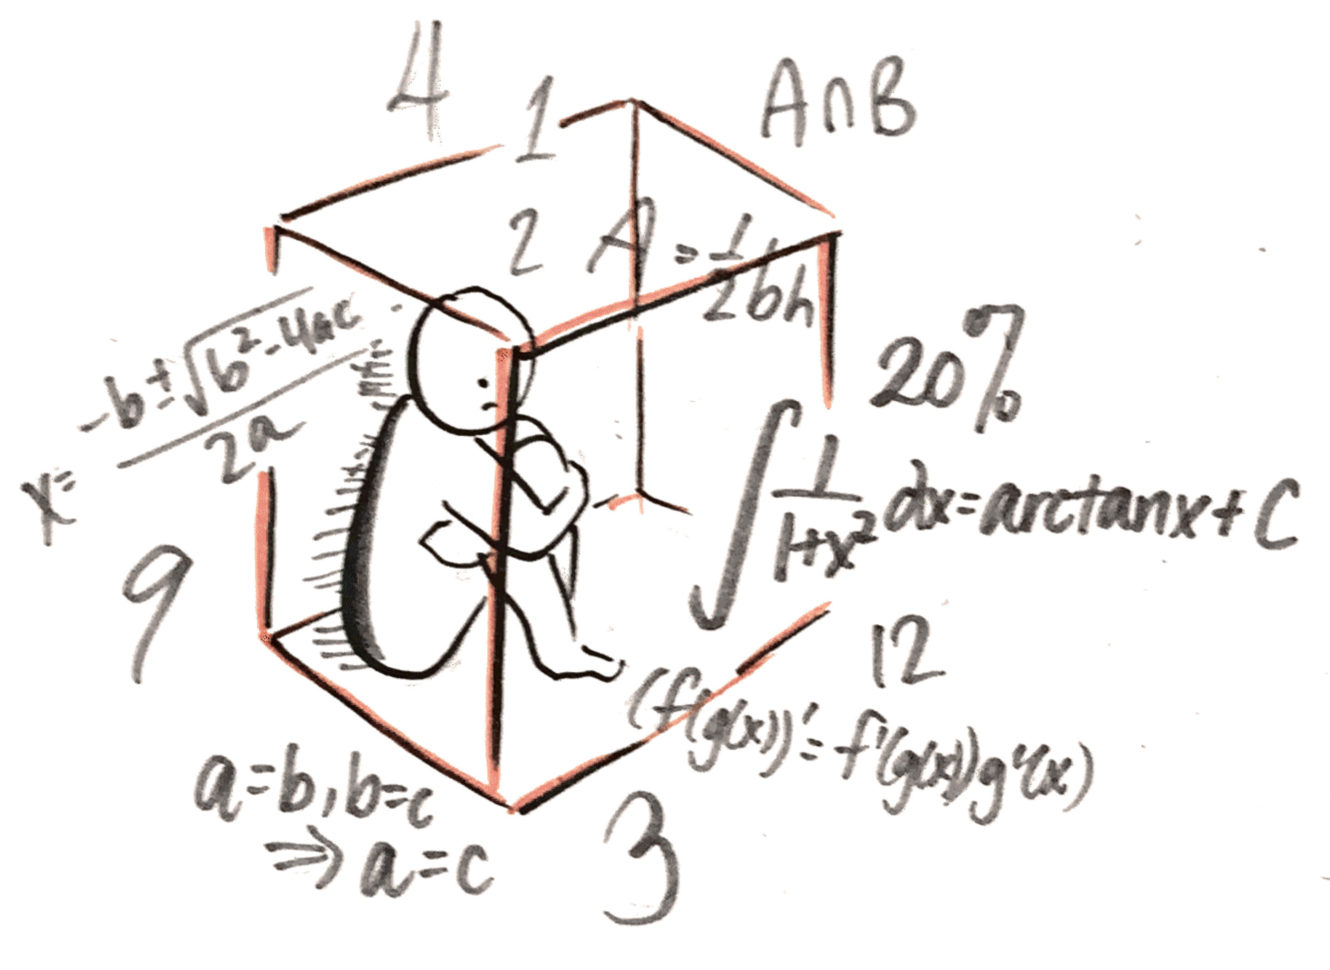 4
1
A∩B
2
A = 1/2 bh
x = (-b ± √(b²-4ac))/(2a)
20%
∫ 1/(1+x²) dx = arctanx + C
9
12
(f(g(x))'= f'(g(x))g'(x)
a=b, b=c
⇒ a=c
3